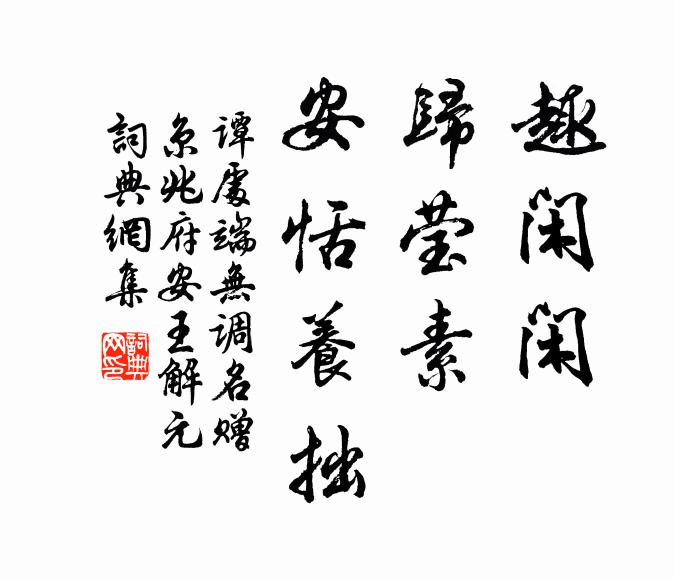 趣闲闲
歸莹素
安恬養拙
谭處端無调名赠
京兆府安王解元
詞典網集
詞典
网印